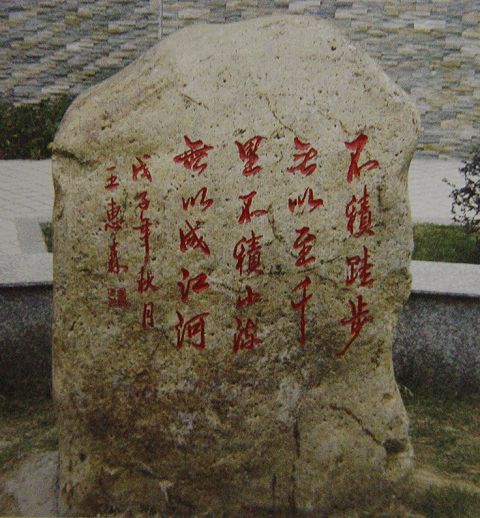 不積跬步
無以至千
里不積小流
無以成江河
戊子年秋月
王惠森